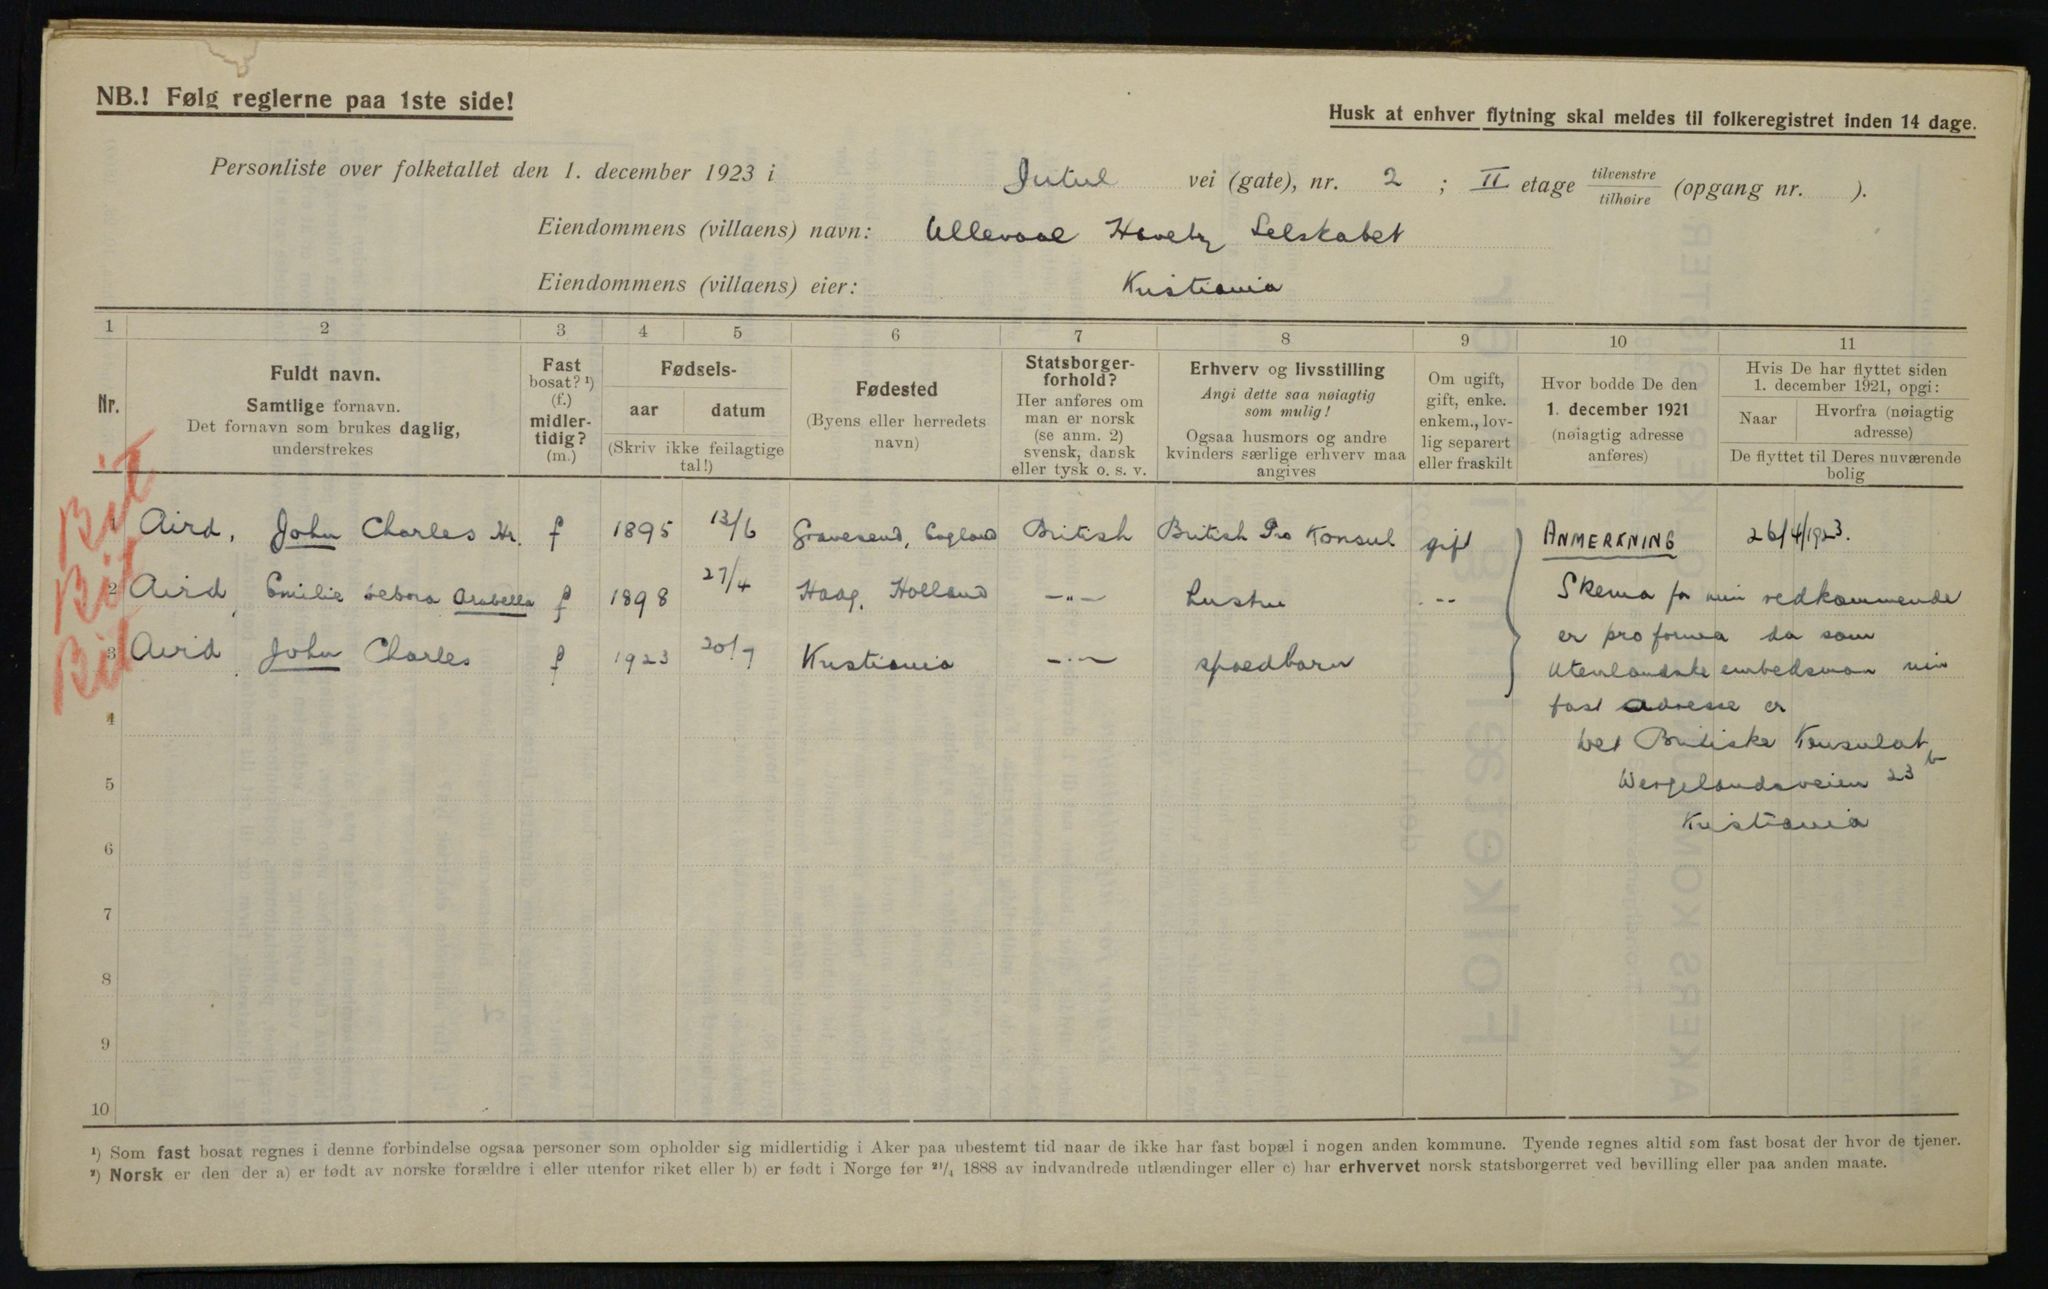 NB.! Følg reglerne paa 1ste side!
Husk at enhver flytning skal meldes til folkeregistret inden 14 dage.
Personliste over folketallet den 1. december 1923 i Jutul vei (gate), nr. 2 ; II etage tilvenstre / tilhøire (opgang nr. ).
Eiendommens (villaens) navn: Ullevaal Haveby Selskabet
Eiendommens (villaens) eier: Kristiania
1 2 3 4 5 6 7 8 9 10 11
Nr.
Fuldt navn.
Samtlige fornavn.
Det fornavn som brukes daglig,
understrekes
Fast
bosat? ¹)
(f.)
midler-
tidig?
(m.)
Fødsels-
aar datum
(Skriv ikke feilagtige
tal!)
Fødested
(Byens eller herredets
navn)
Statsborger-
forhold?
Her anføres om
man er norsk
(se anm. 2)
svensk, dansk
eller tysk o. s. v.
Erhverv og livsstilling
Angi dette saa nøiagtig
som mulig!
Ogsaa husmors og andre
kvinders særlige erhverv maa
angives
Om ugift,
gift, enke.
enkem., lov-
lig separert
eller fraskilt
Hvor bodde De den
1. december 1921
(nøiagtig adresse
anføres)
Hvis De har flyttet siden
1. december 1921, opgi:
Naar Hvorfra (nøiagtig
adresse)
De flyttet til Deres nuværende
bolig
1 Aird, John Charles Hr. f 1895 13/6 Gravesend, England British British Pro Konsul gift
2 Aird, Emilie Debora Arabella f 1898 27/4 Haag, Holland -"- Hustru -"-
3 Aird, John Charles f 1923 20/7 Kristiania -"- spædbarn
ANMERKNING 26/4/1923.
Skema for min vedkommende
er pro forma da som
utenlandske embedsman min
fast adresse er
Det Britiske Konsulat
Wergelandsveien 23 b
Kristiania
Brit
Brit
Brit
4
5
6
7
8
9
10
¹) Som fast bosat regnes i denne forbindelse ogsaa personer som opholder sig midlertidig i Aker paa ubestemt tid naar de ikke har fast bopæl i nogen anden kommune. Tyende regnes altid som fast bosat der hvor de tjener.
²) Norsk er den der a) er født av norske forældre i eller utenfor riket eller b) er født i Norge før 21/4 1888 av indvandrede utlændinger eller c) har erhvervet norsk statsborgerret ved bevilling eller paa anden maate.